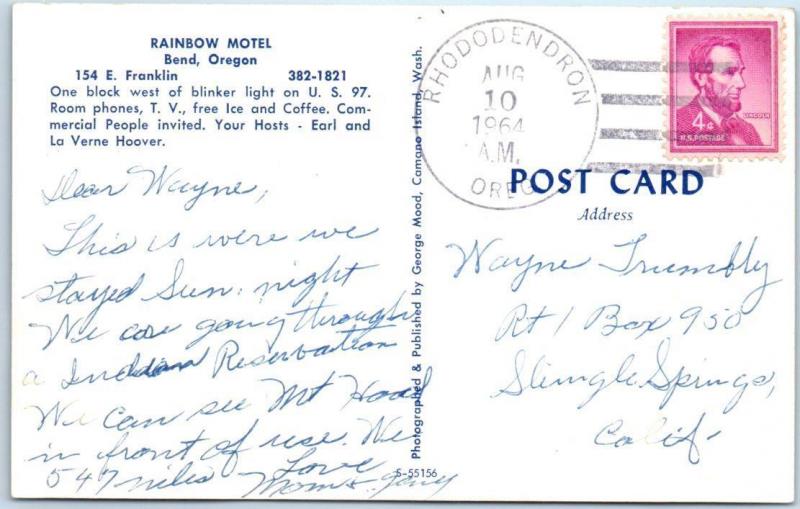 RAINBOW MOTEL
Bend, Oregon
154 E. Franklin 382-1821
One block west of blinker light on U. S. 97.
Room phones, T. V., free Ice and Coffee. Com-
mercial People invited. Your Hosts - Earl and
La Verne Hoover.
Dear Wayne,
This is were we
stayed Sun. night
We are going through
a Indian Reservation
We can see Mt Hood
in front of use. We
547 miles Love
Mom &
Photographed & Published by George Mood, Camano Island, Wash.
S-55156
RHODODENDRON
AUG
10
1964
A.M.
OREG
4¢
LINCOLN
U.S. POSTAGE
POST CARD
Address
Wayne Trumbly
Rt 1 Box 950
Slingle Springs,
Calif.